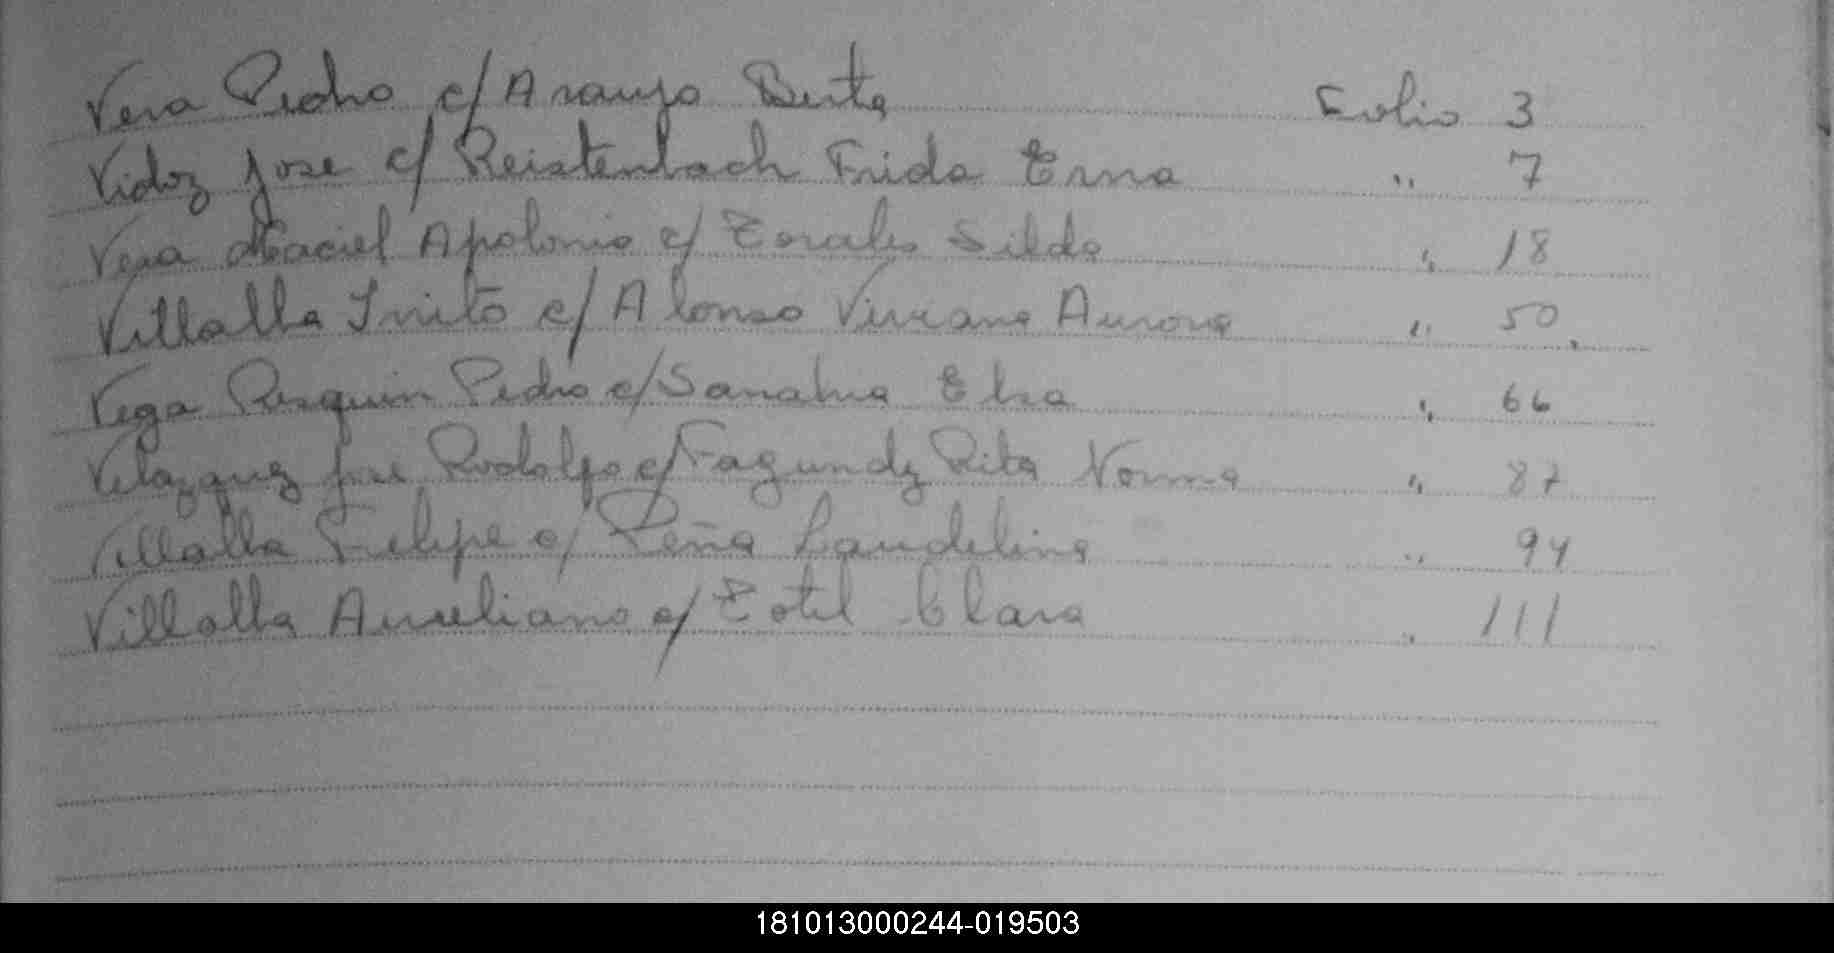 Vera Pedro c/ Araujo Berta Folio 3
Vidoz Jose c/ Reistenbach Frida Erna " 7
Vera Maciel Apolonio c/ Torales Silda " 18
Villalba c/ Alonso Viviana Aurora " 50.
Vega Pedro c/ Sanabria Elsa " 66
Velazquez Jose Rodolfo c/ Fagundez Rita Norma " 87
Villalba Felipe c/ Peña Laudelina " 94
Villalba Aureliano c/ Clara " 111
181013000244-019503